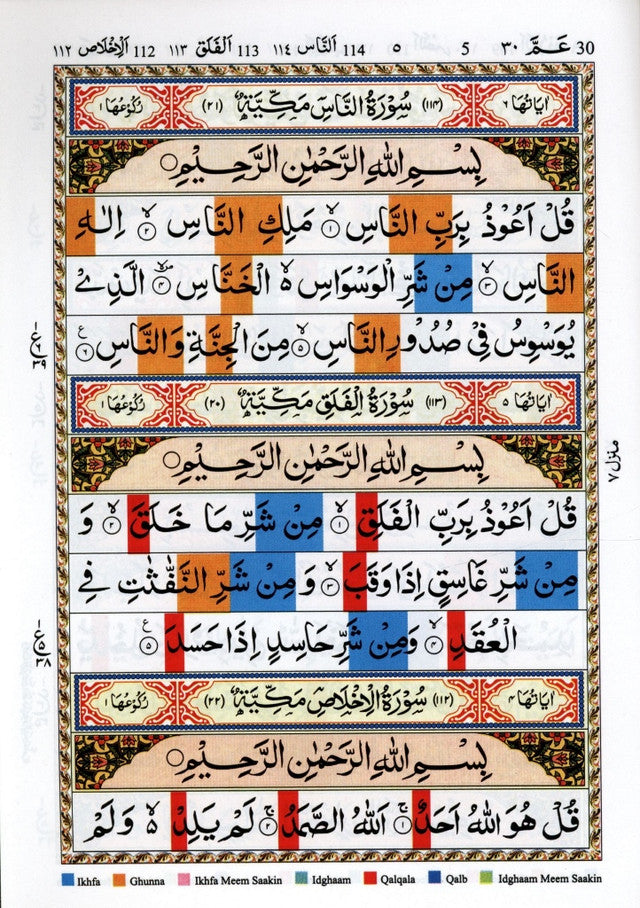 30 عَمَّ ٣٠ 5 ٥ 114 اَلنَّاس ١١٤ 113 اَلْفَلَق ١١٣ 112 اَلْاِخْلَاص ١١٢
اٰيَاتُهَا ٦ (١١٤) سُوْرَةُ النَّاسِ مَكِّيَّةٌ (٢١) رُكُوْعُهَا ١
بِسْمِ اللهِ الرَّحْمٰنِ الرَّحِيْمِ
قُلْ اَعُوْذُ بِرَبِّ النَّاسِ ۙ‏﴿۱﴾ مَلِكِ النَّاسِ ۙ‏﴿۲﴾ اِلٰهِ
النَّاسِ ۙ‏﴿۳﴾ مِنْ شَرِّ الْوَسْوَاسِ ۙ۬ الْخَنَّاسِ ۪ۙ‏﴿۴﴾ الَّذِىْ
يُوَسْوِسُ فِىْ صُدُوْرِ النَّاسِ ۙ‏﴿۵﴾ مِنَ الْجِنَّةِ وَالنَّاسِ ‏﴿۶﴾ ع
اٰيَاتُهَا ٥ (١١٣) سُوْرَةُ الْفَلَقِ مَكِّيَّةٌ (٢٠) رُكُوْعُهَا ١
بِسْمِ اللهِ الرَّحْمٰنِ الرَّحِيْمِ
قُلْ اَعُوْذُ بِرَبِّ الْفَلَقِ ۙ‏﴿۱﴾ مِنْ شَرِّ مَا خَلَقَ ۙ‏﴿۲﴾ وَ
مِنْ شَرِّ غَاسِقٍ اِذَا وَقَبَ ۙ‏﴿۳﴾ وَ مِنْ شَرِّ النَّفّٰثٰتِ فِى
الْعُقَدِ ۙ‏﴿۴﴾ وَمِنْ شَرِّ حَاسِدٍ اِذَا حَسَدَ ‏﴿۵﴾ ع
اٰيَاتُهَا ٤ (١١٢) سُوْرَةُ الْاِخْلَاصِ مَكِّيَّةٌ (٢٢) رُكُوْعُهَا ١
بِسْمِ اللهِ الرَّحْمٰنِ الرَّحِيْمِ
قُلْ هُوَ اللهُ اَحَدٌ ۚ‏﴿۱﴾ اَللهُ الصَّمَدُ ۚ‏﴿۲﴾ لَمْ يَلِدْ ۙ۬ وَلَمْ
منزل ٧
Ikhfa Ghunna Ikhfa Meem Saakin Idghaam Qalqala Qalb Idghaam Meem Saakin